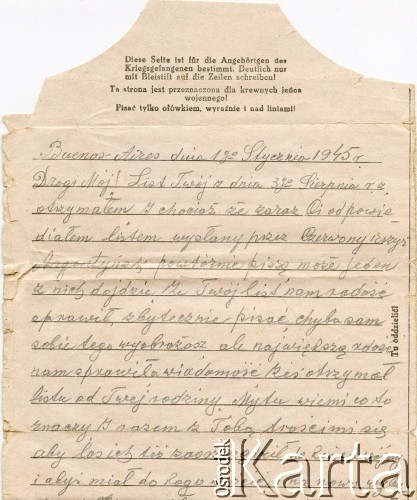 Diese Seite ist für die Angehörigen des
Kriegsgefangenen bestimmt. Deutlich nur
mit Bleistift auf die Zeilen schreiben!
Ta strona jest przeznaczona dla krewnych jeńca
wojennego!
Pisać tylko ołówkiem, wyraźnie i nad liniami!
Buenos Aires dnia 1go Stycznia 1945 r
Drogi Mój! List Twój z dnia Sierpnia r.z
otrzymałem I chociaż że zaraz Ci odpowie
działem listem wysłany przez Czerwony
powtórnie piszę może jeden
z nich dojdzie Że Twój list nam radość
sprawił zbytecznie pisać chyba sam
sobie tego wyobrożasz ale największą
nam sprawiła wiadomość żeś otrzymał
listu od Twej rodziny My tu wiemi co to
znaczy I razem z Tobą trościmi się
aby los ich też
i abyś miał do kogo
Tu oddzielić!
Ośrodek
Karta